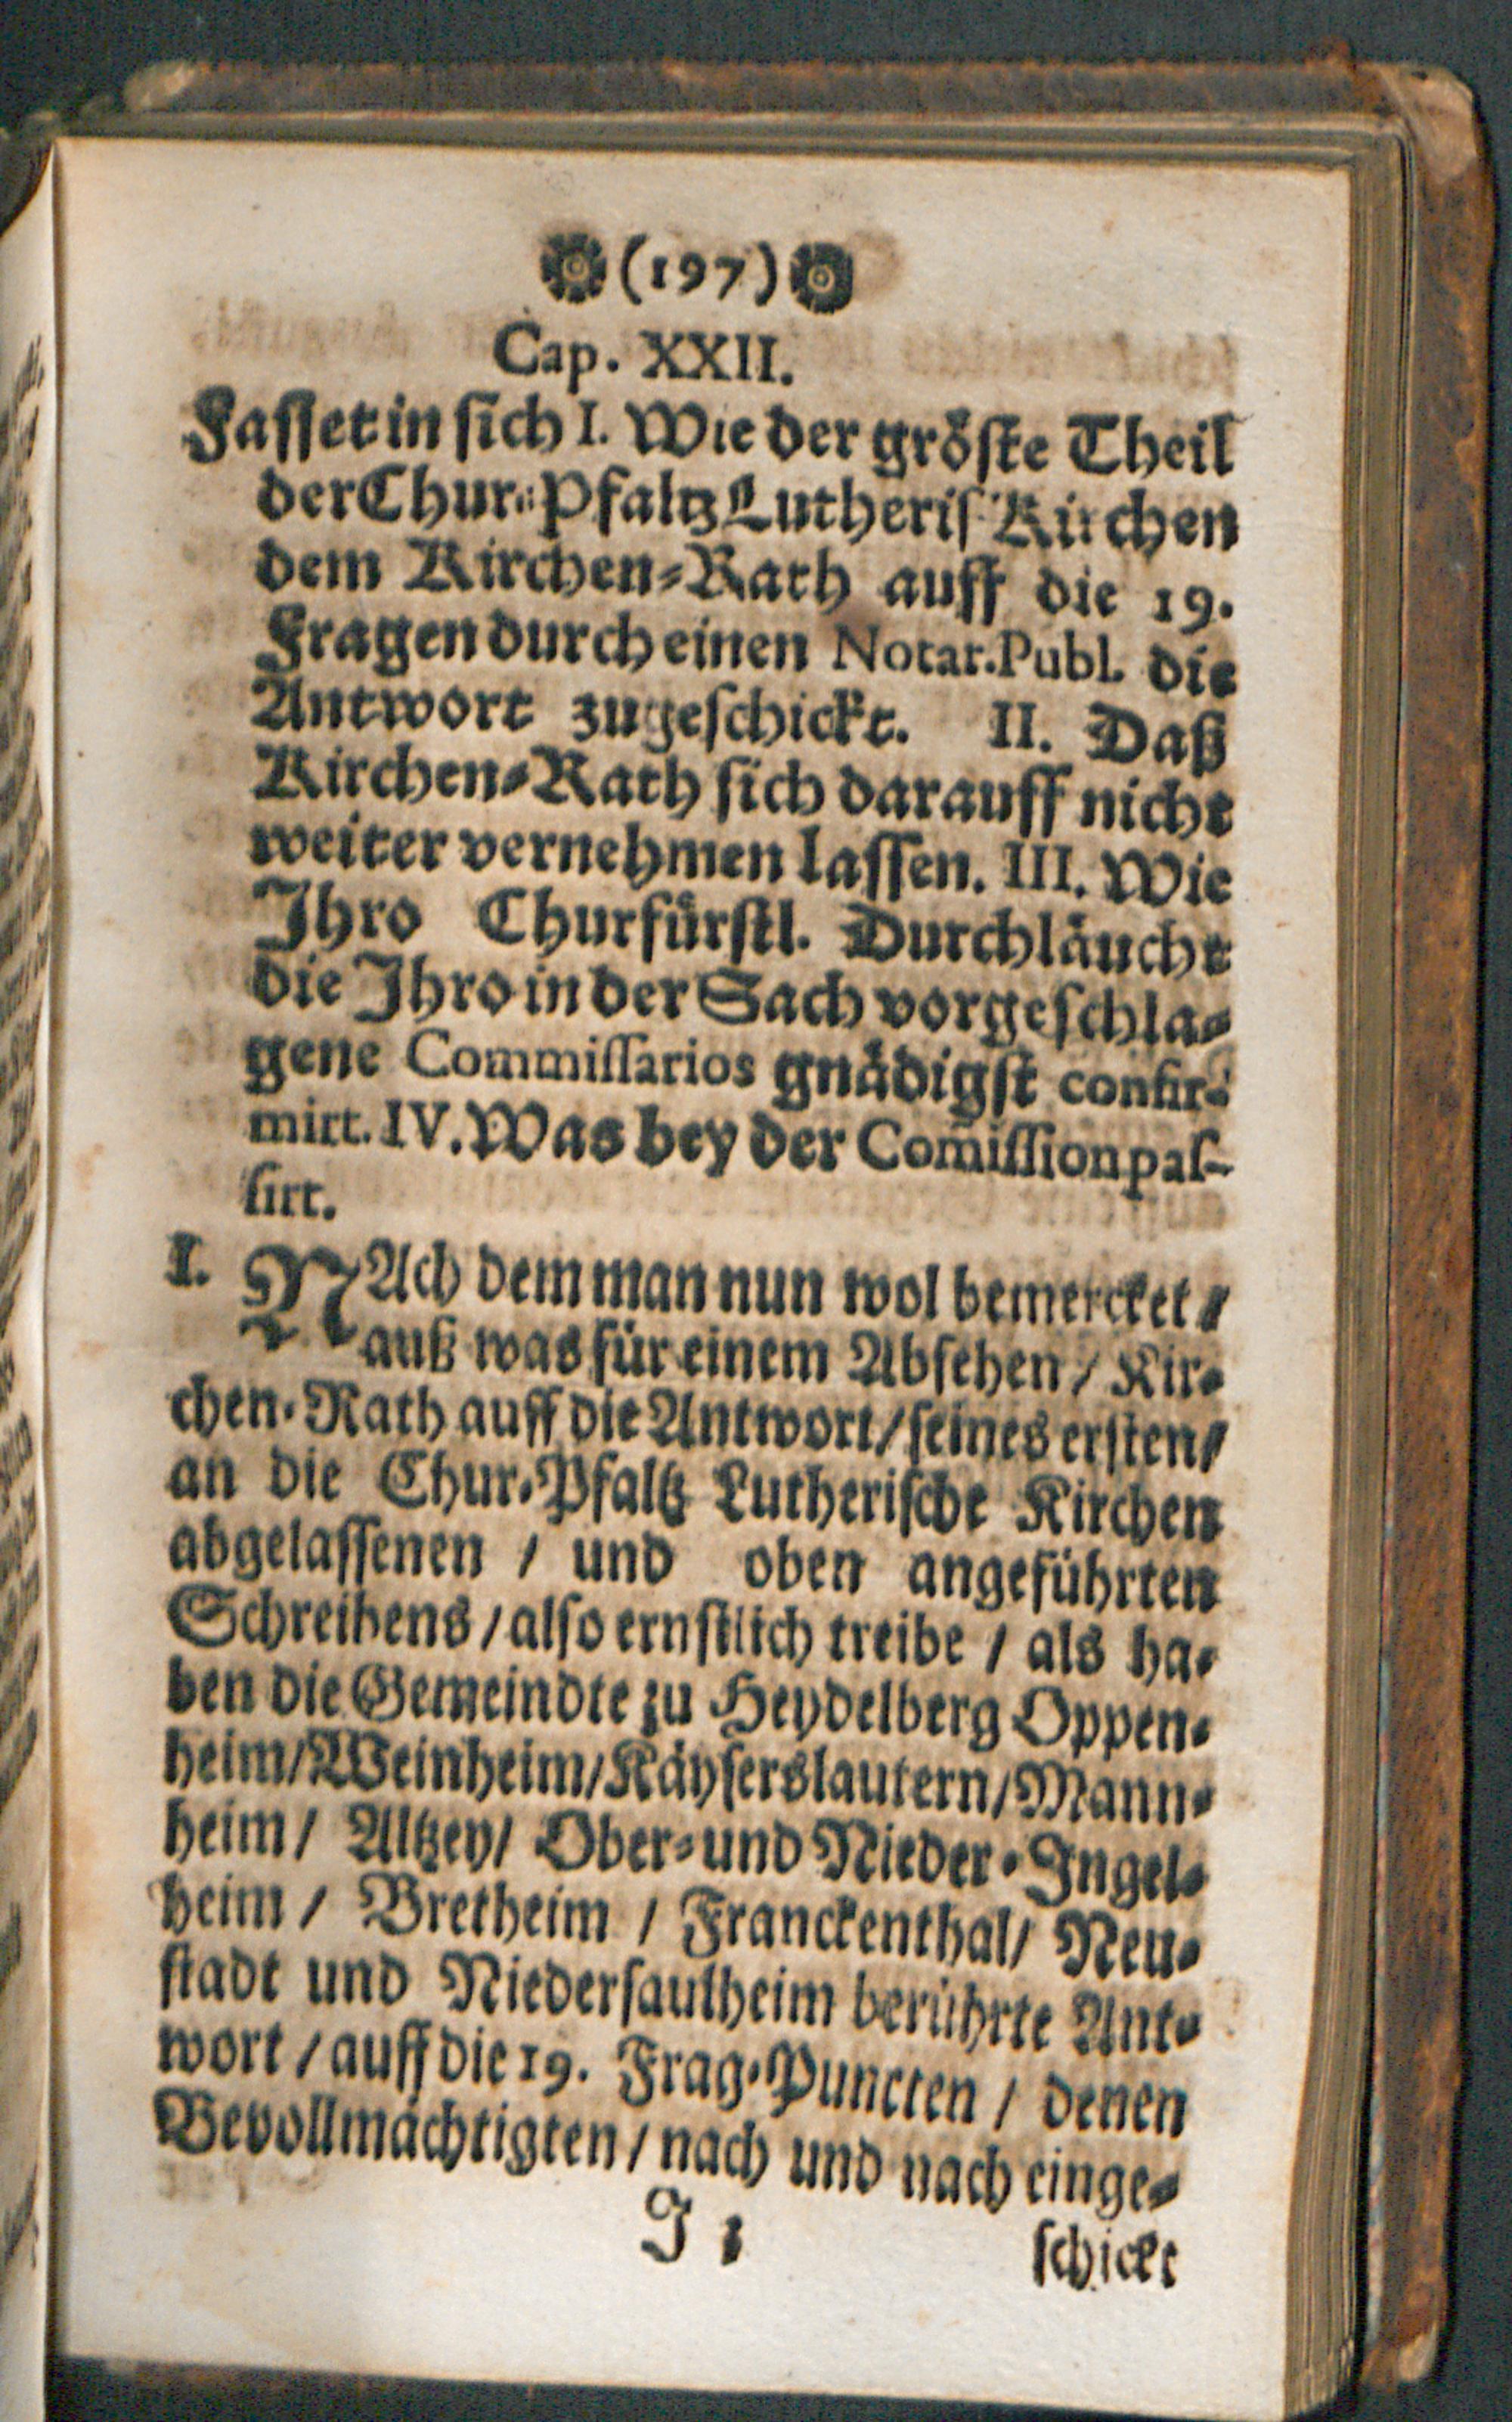 (197)
Cap. XXII.
Fasset in sich I. Wie der gröste Theil
der Chur-Pfaltz Lutheris. Kirchen
dem Kirchen-Rath auff die 19.
Fragen durch einen Notar. Publ. die
Antwort zugeschickt. II. Daß
Kirchen-Rath sich darauff nicht
weiter vernehmen lassen. III. Wie
Ihro Churfürstl. Durchläucht
die Ihro in der Sach vorgeschla-
gene Commissarios gnädigst confir-
mirt. IV. Was bey der Com̃ission pas-
sirt.
I. NAch dem man nun wol bemercket /
auß was für einem Absehen / Kir-
chen-Rath auff die Antwort / seines ersten /
an die Chur-Pfaltz Lutherische Kirchen
abgelassenen / und oben angeführten
Schreibens / also ernstlich treibe / als ha-
ben die Gemeindte zu Heydelberg Oppen-
heim / Weinheim / Käyserslautern / Mann-
heim / Altzey / Ober- und Nieder-Ingel-
heim / Bretheim / Franckenthal / Neu-
stadt und Niedersaulheim berührte Ant-
wort / auff die 19. Frag-Puncten / denen
Bevollmächtigten / nach und nach einge-
schickt